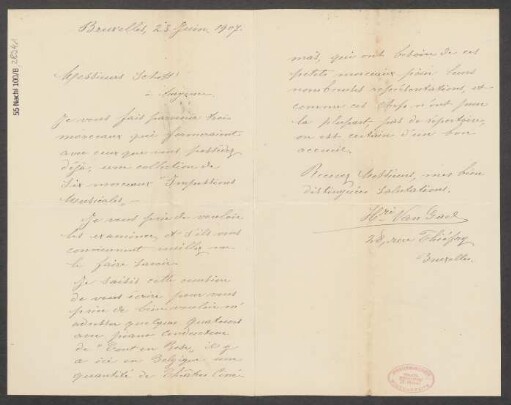 Bruxelles, 28 Juin 1907.
Messieurs Schott
à Mayence
Je vous fais parvenir trois
morceaux qui formeraient
avec ceux que vous possédez
déjà, une collection de
Six morceaux Impressions
Musicales.
Je vous prie de vouloir
les examiner, et s'ils vous
conviennent veuillez me
le faire savoir.
Je saisis cette occasion
de vous écrire pour vous
prier de bien vouloir
quelques quatuors
avec piano conducteur
de
a ici en Belgique une
quantité de théâtres Ciné-
mas, qui ont besoin de ces
petits morceaux pour leurs
nombreuses représentations, et
comme ces Chefs n'ont pour
la plupart pas de répertoire,
on est certain d'un bon
accueil.
Recevez Messieurs, mes bien
distinguées salutations.
Hri Van Gael
28, rue Thiéfry
Bruxelles.
55 Nachl 100/B